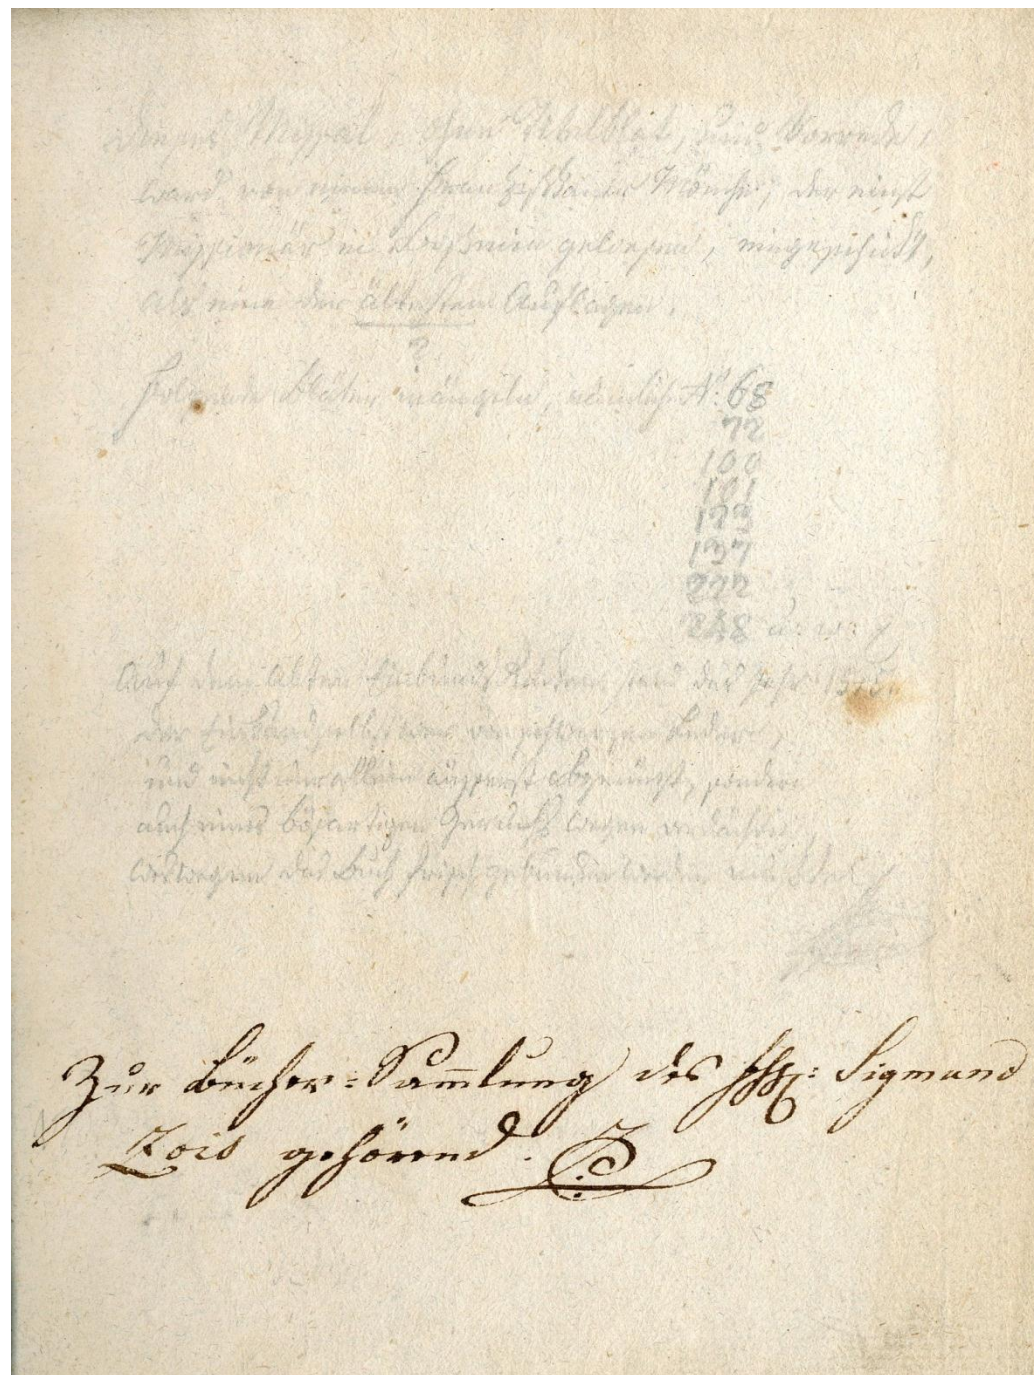 Dieses Missal, ohne Titelblat, und Vorrede,
ward von einem Franziskaner Mönche, der einst
Missionär in Boßnien gewesen, eingeschickt,
als eine der ältesten Auflagen.
?
Folgende Bläter mängeln, nämlich N° 68
72
100
101
137
222
248 u: w:
Auf dem alten Einbunds Rücken stand das Jahr
der Einband selbst war von schwarzem Leder,
und nicht nur allein äusserst abgenützt, sondern
auch eines bösartigen Geruchs wegen verdächtig,
weswegen das Buch frisch gebunden werden
Zur Bücher=Sammlung des Sigmund
Zois gehörend.